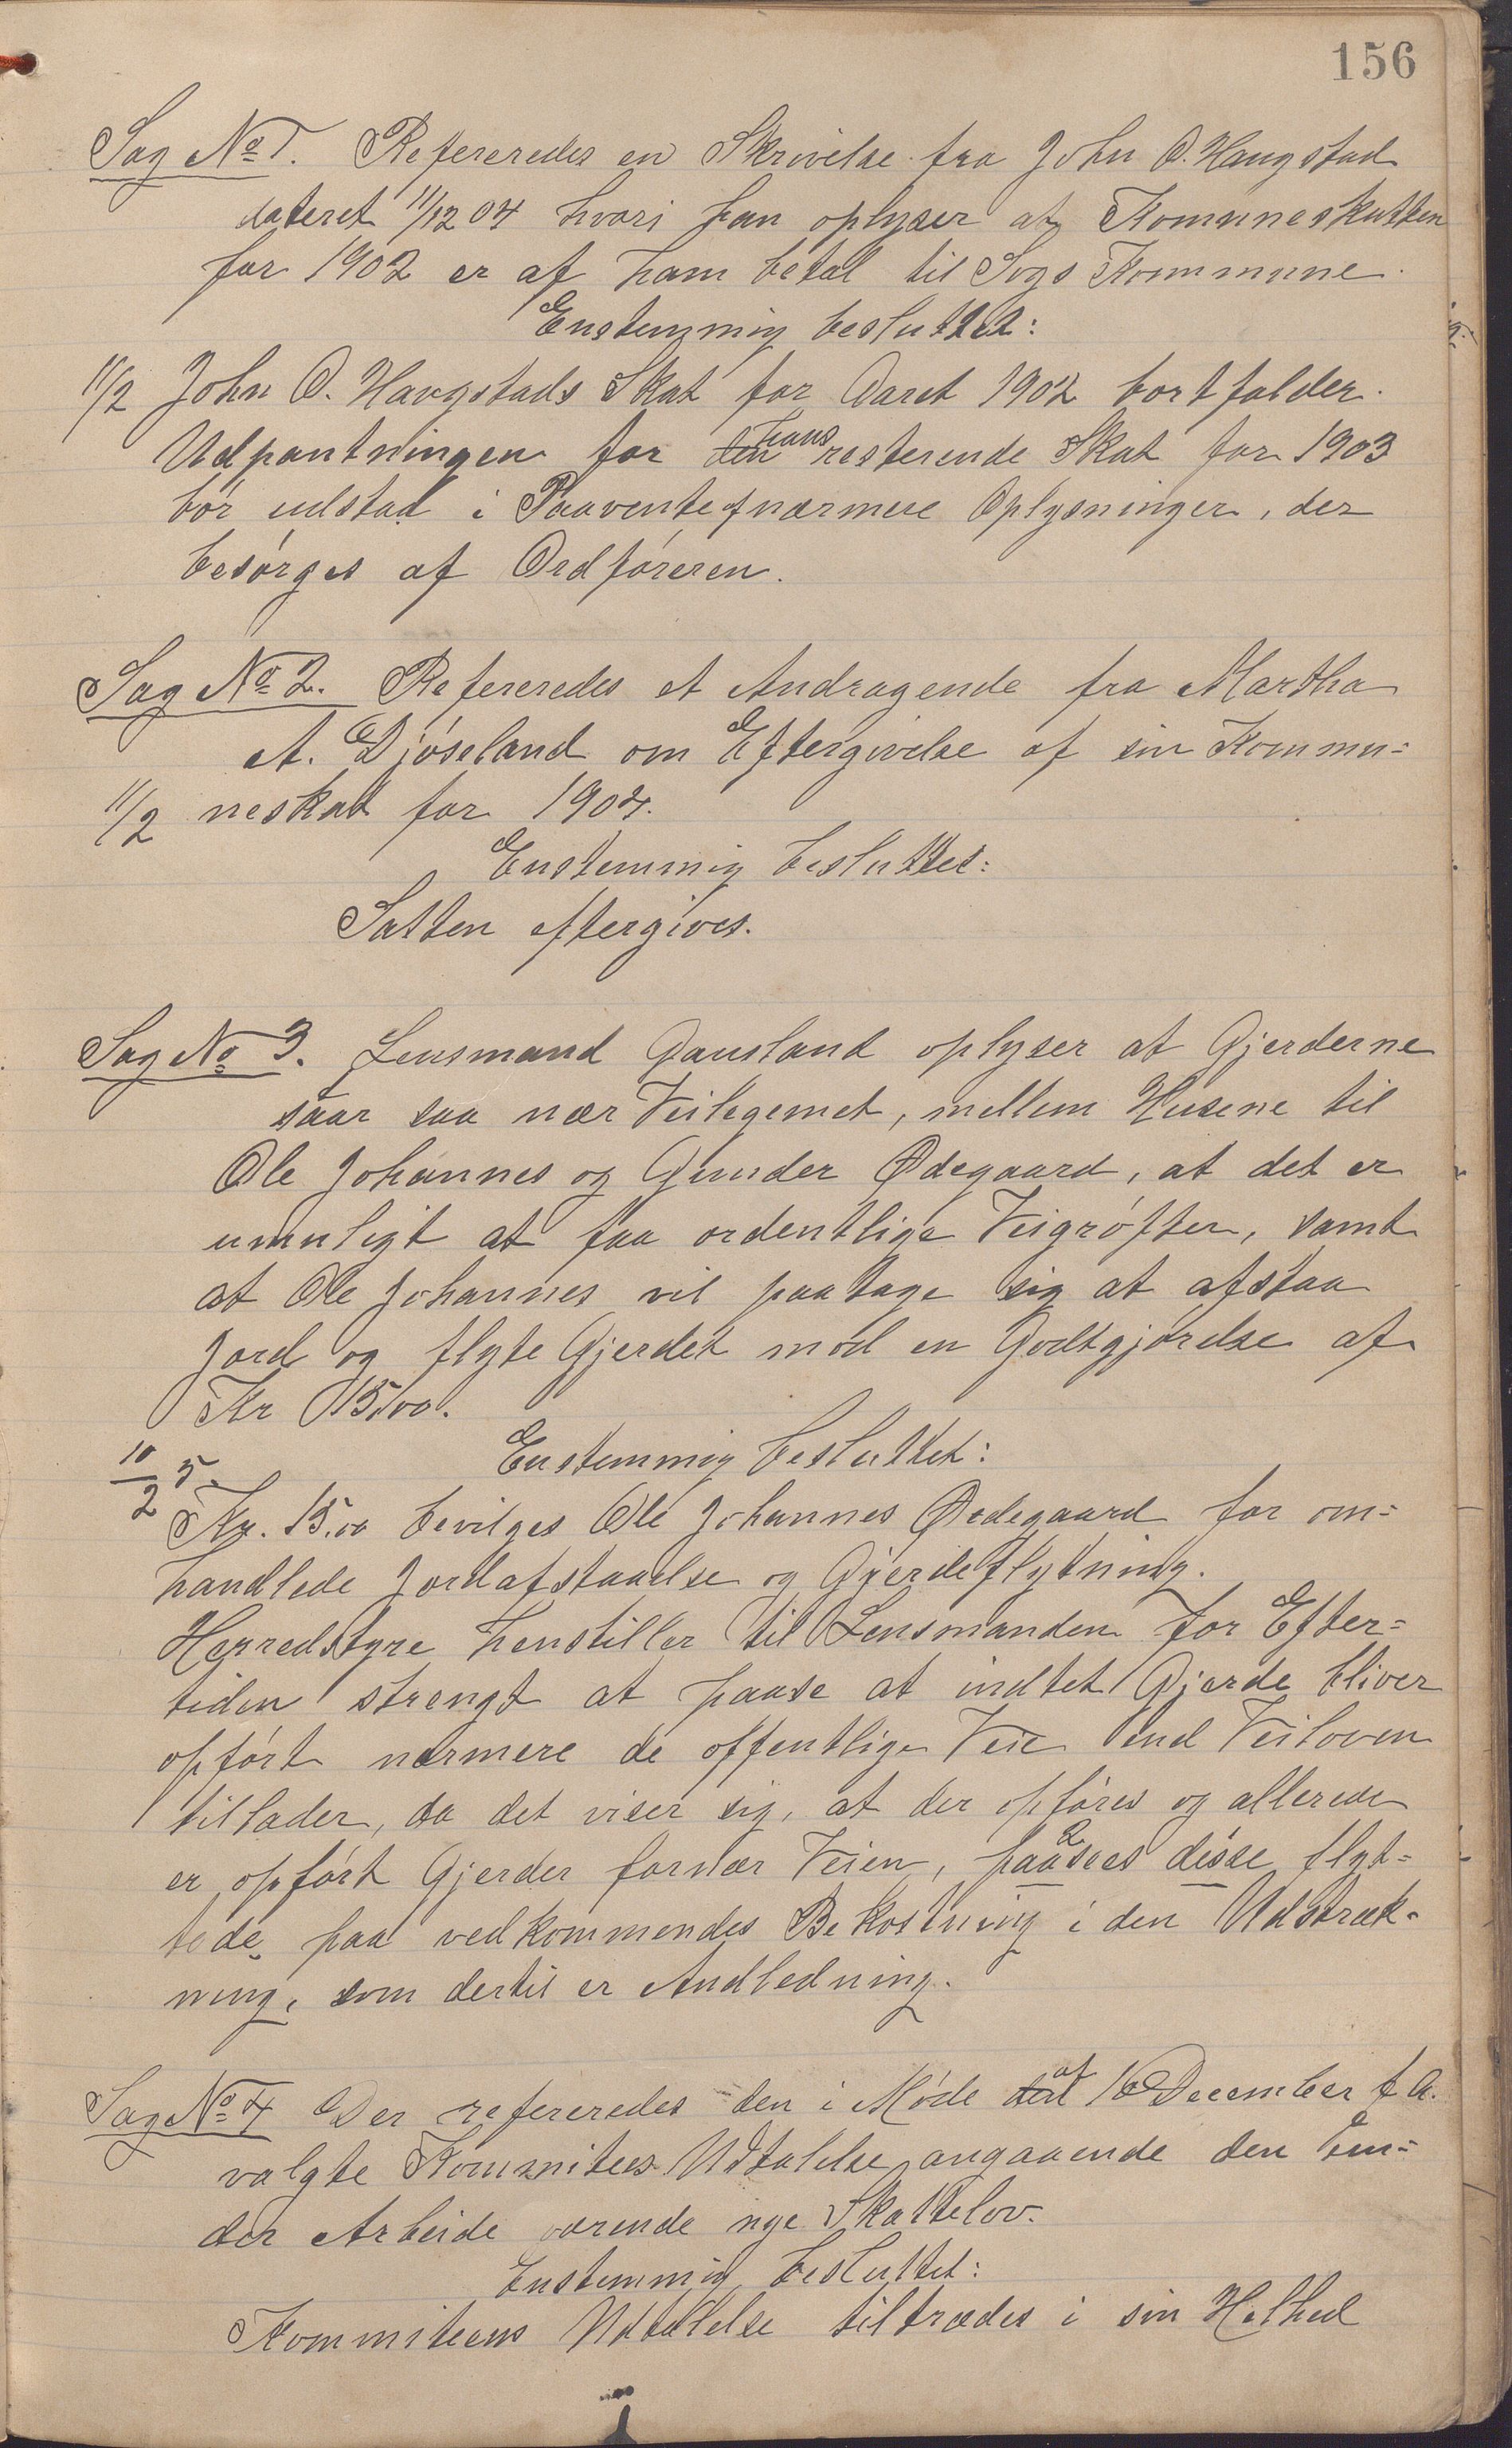 156
Sag No 1. Refereredes en Skrivelse fra John O. Haugstad
dateret 11/12 04 hvori han oplyser at Komuneskatten
for 1902 er af ham betal til Sogs Kommune.
Enstemmig besluttet:
11/2 John O. Havgstads Skat for Aaret 1902 bortfalder.
Udpantningen for den hans resterende Skat for 1903
bör udstad i Paavente af nærmere Oplysninger, der
besörges af Ordföreren.
Sag No 2. Refereredes et Andragende fra Martha
A. Djöseland om Eftergivelse af sin Kommu=
11/2 neskat for 1904.
Enstemmig besluttet:
Satten eftergives.
Sag No 3. Lensmand Gausland oplyser at Gjerderne
staar saa nær Veilegemet, mellem Husene til
Ole Johannes og Gunder Ødegaard, at det er
umuligt at faa ordentlige Veigröfter, samt
at Ole Johannes vil paatage sig at afstaa
Jord og flyte Gjerdet mod en Godtgjörelse af
Kr 15,00.
Enstemmig besluttet:
10/2 5.
Kr. 15,00 bevilges Ole Johannes Ødegaard for om=
handlede Jordafstaaelse og Gjerdeflytning.
Herredstyre henstiller til Lensmanden for Efter=
tiden strengt at paase at indtet Gjerde bliver
opfört nærmere de offentlige Veie end Veiloven
tillader, da det viser sig, at der opföres og allerede
er opfört Gjerder fornær Veien, paasees disse flyt=
tede paa vedkommendes Bekostning i den Udstræk=
ning, som dertil er Andledning.
Sag No 4 Der refereredes den i Möde den af 16 December f. A.
valgte Kommitees Udtalelse angaaende den un=
der Arbeide værende nye Skattelov.
Enstemmig besluttet:
Kommiteens Udtalelse tiltrædes i sin Helhed